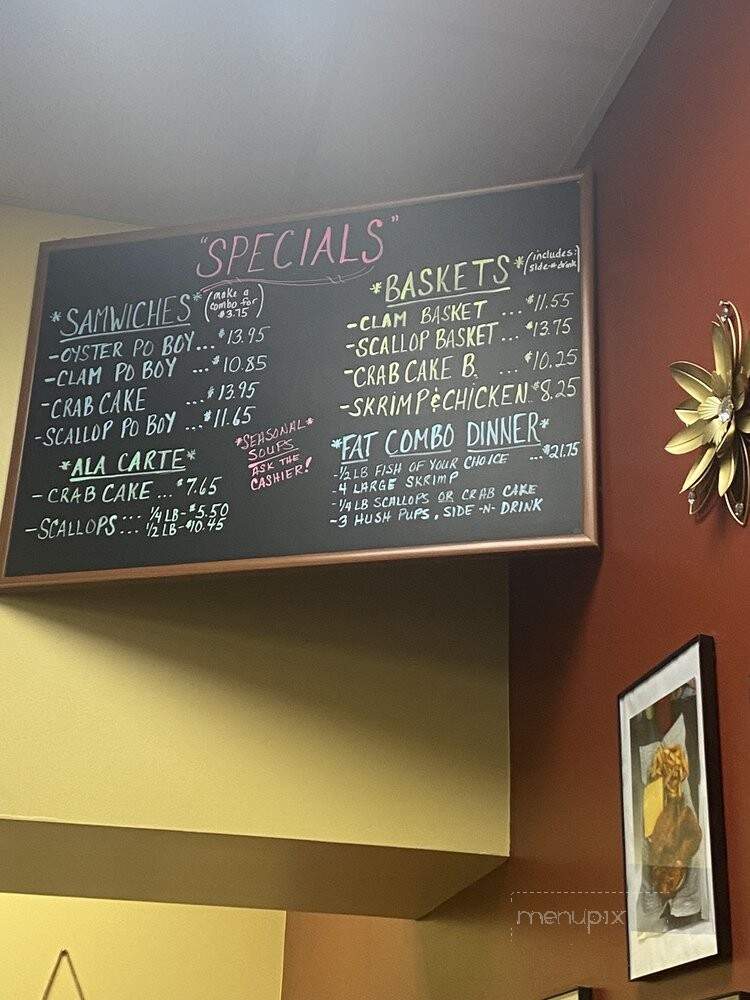 "SPECIALS"
*SAMWICHES* (make a combo for $3.75)
-OYSTER PO BOY... $13.95
-CLAM PO BOY ... $10.85
-CRAB CAKE ... $13.95
-SCALLOP PO BOY ... $11.65
*ALA CARTE*
- CRAB CAKE ... $7.65
-SCALLOPS ... 1/4 LB-$5.50
1/2 LB-$10.45
*SEASONAL*
SOUPS
ASK THE
CASHIER!
*BASKETS* (includes: side-n-drink)
-CLAM BASKET ... $11.55
-SCALLOP BASKET ... $13.75
-CRAB CAKE B. ... $10.25
-SKRIMP & CHICKEN. $8.25
*FAT COMBO DINNER*
-1/2 LB FISH OF YOUR CHOICE ... $21.75
-4 LARGE SKRIMP
-1/4 LB SCALLOPS OR CRAB CAKE
-3 HUSH PUPS, SIDE -N- DRINK
menupix